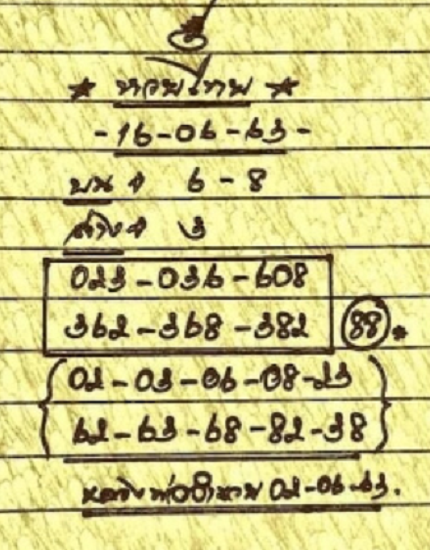 ★ หอมเทพ ★
- 16-06-63 -
บน → 6 - 8
ล่าง → 3
023 - 036 - 608
362 - 368 - 382 88 *
02 - 03 - 06 - 08 - 23
62 - 63 - 68 - 82 - 38
02-06-63.